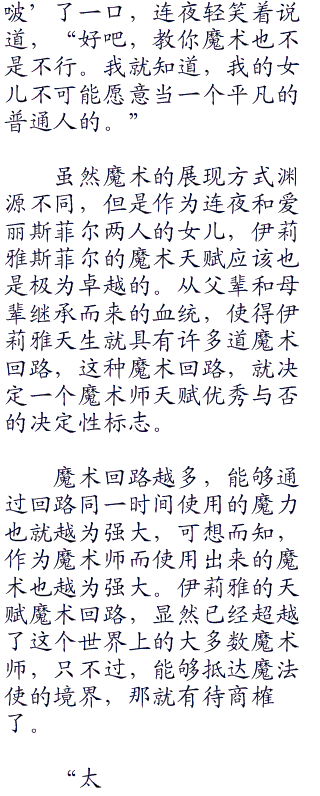 啵’了一口，连夜轻笑着说
道，“好吧，教你魔术也不
是不行。我就知道，我的女
儿不可能愿意当一个平凡的
普通人的。”
虽然魔术的展现方式渊
源不同，但是作为连夜和爱
丽斯菲尔两人的女儿，伊莉
雅斯菲尔的魔术天赋应该也
是极为卓越的。从父辈和母
辈继承而来的血统，使得伊
莉雅天生就具有许多道魔术
回路，这种魔术回路，就决
定一个魔术师天赋优秀与否
的决定性标志。
魔术回路越多，能够通
过回路同一时间使用的魔力
也就越为强大，可想而知，
作为魔术师而使用出来的魔
术也越为强大。伊莉雅的天
赋魔术回路，显然已经超越
了这个世界上的大多数魔术
师，只不过，能够抵达魔法
使的境界，那就有待商榷
了。
“太